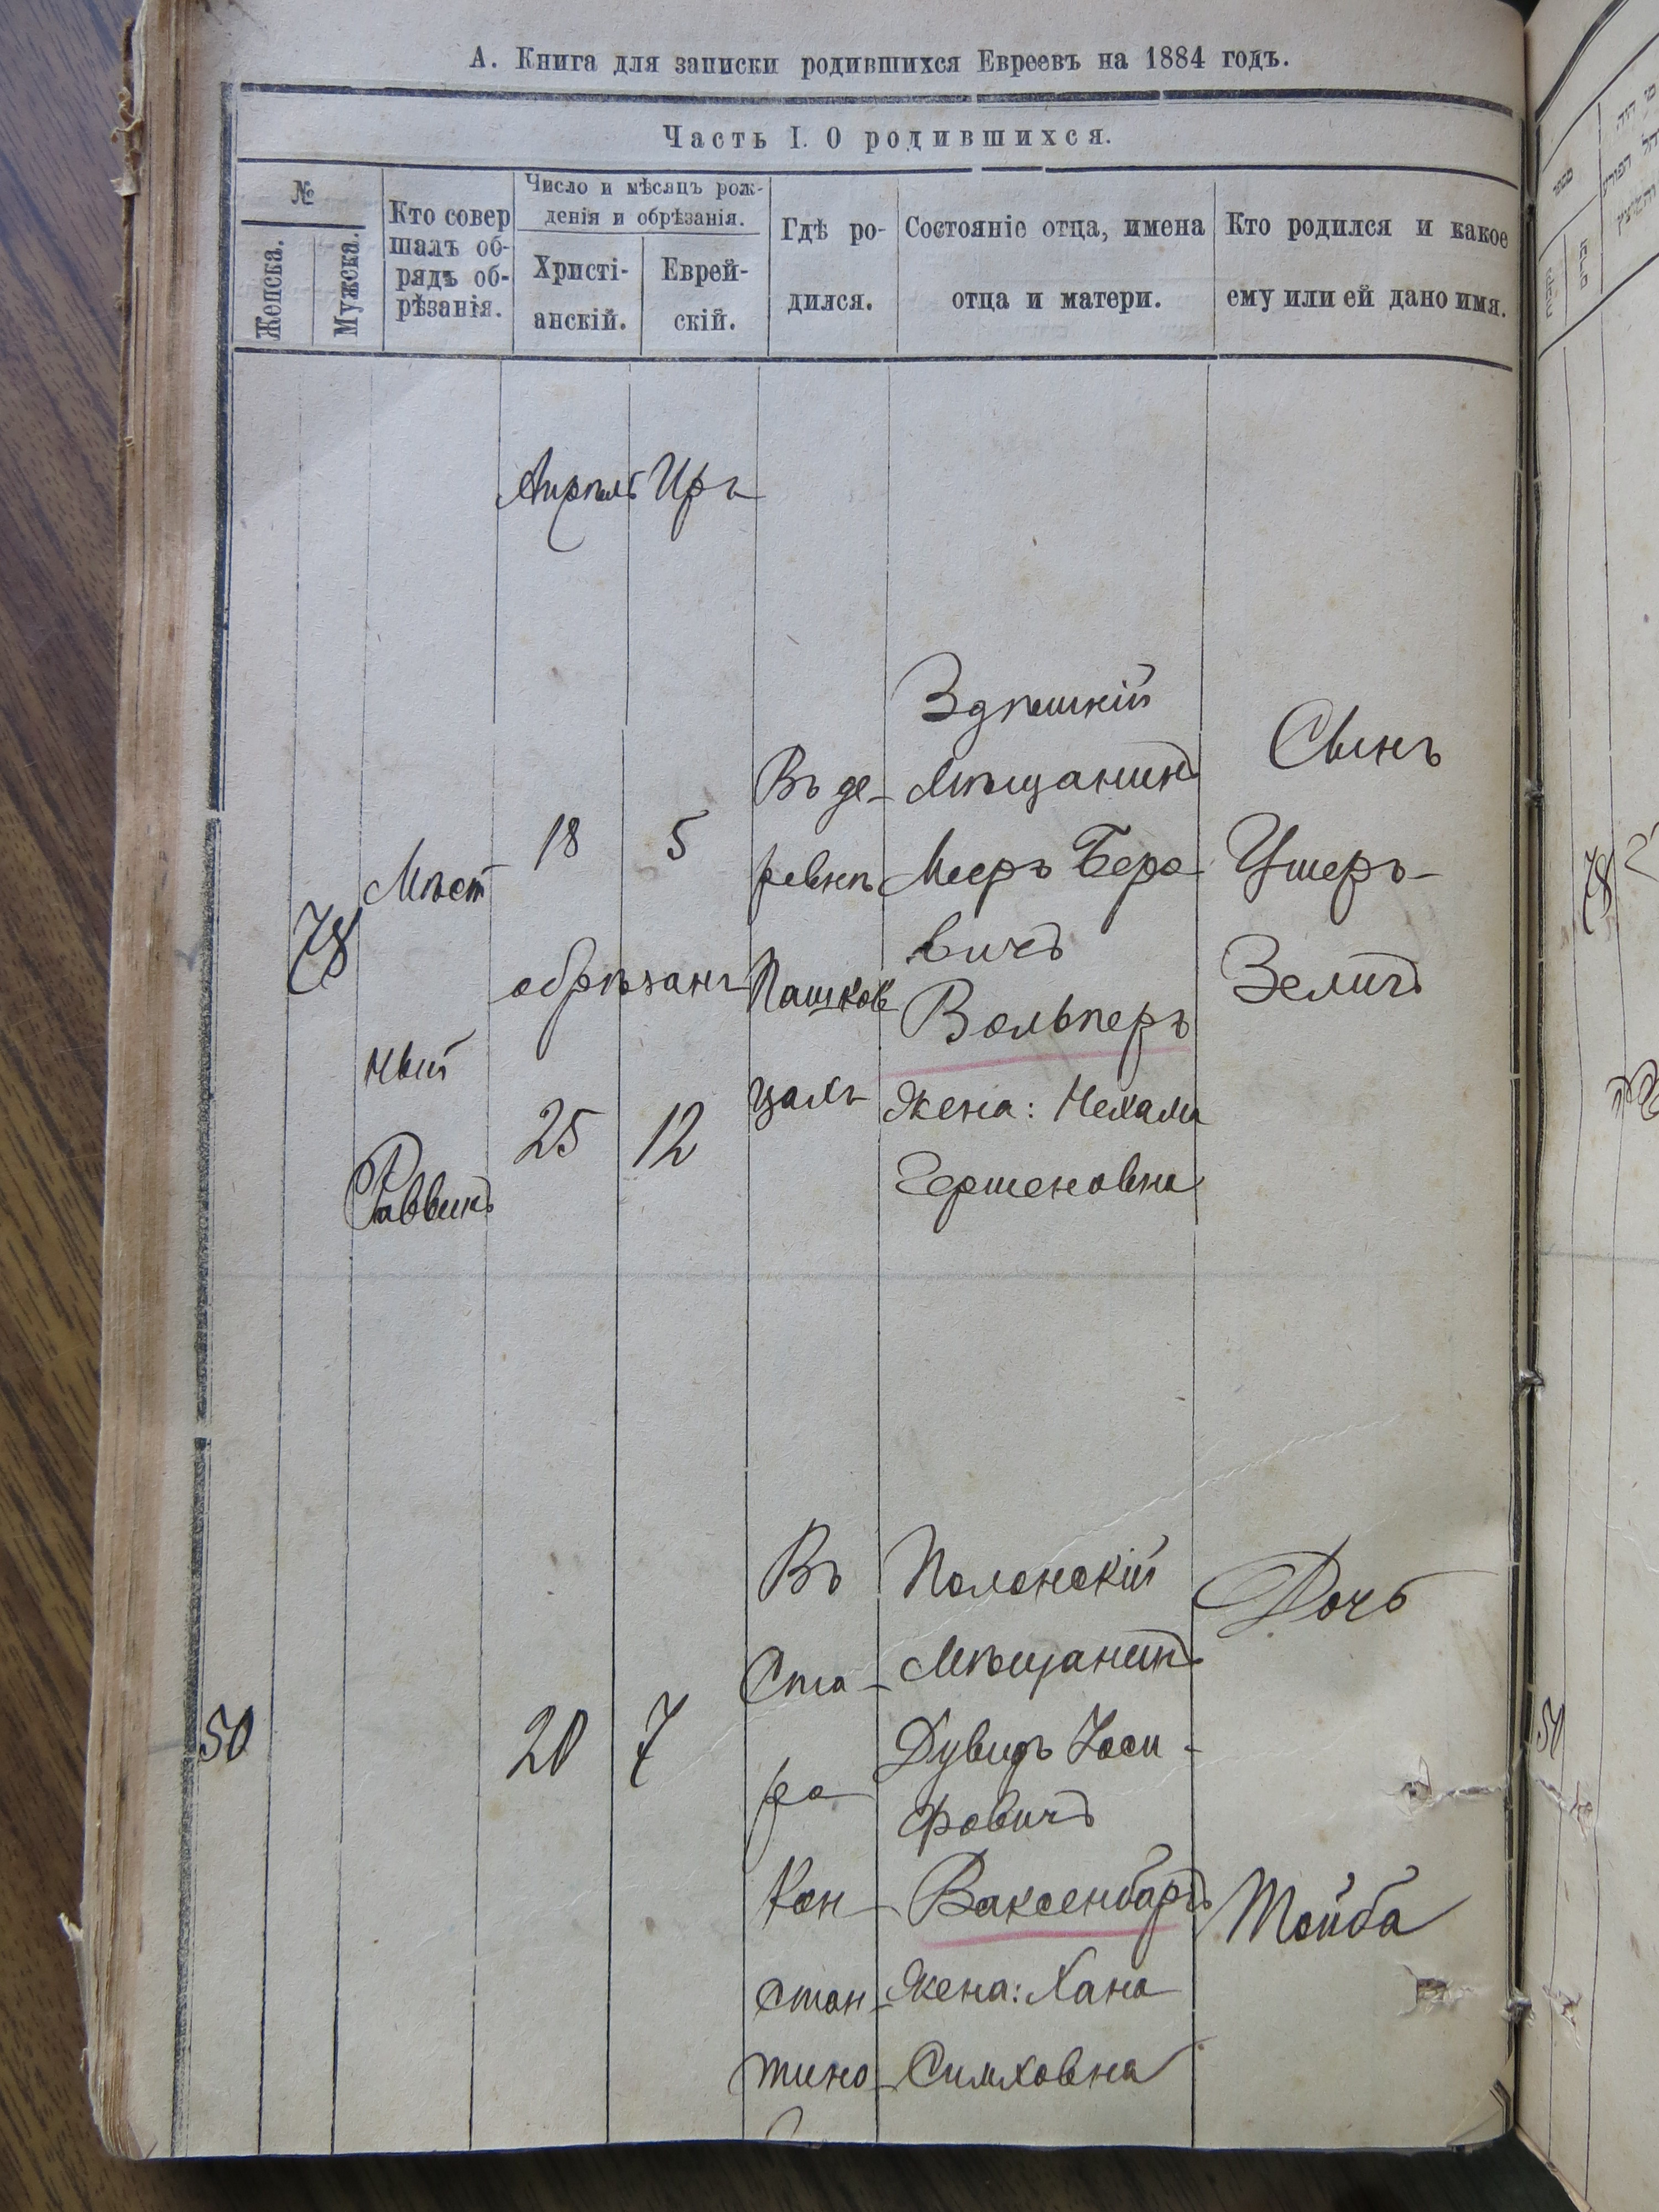 А. Книга для записки родившихся Евреевъ на 1884 годъ.
Часть I. О родившихся.
№
Женска.
Мужска.
Кто совер
шалъ об-
рядъ об-
рѣзанія.
Число и мѣсяцъ рож-
денія и обрѣзанія.
Христі-
анскій.
Еврей-
скій.
Гдѣ ро-
дился.
Состояніе отца, имена
отца и матери.
Кто родился и какое
ему или ей дано имя.
Апрѣль Иръ
78
Мѣст
ный
Раввинъ
18 5
обрѣзанъ
25 12
Въ де-
ревнѣ
Пашков
цахъ
Здѣшній
Мѣщанинъ
Мееръ Беро
вичъ
Вольперъ
Жена: Нехама
Гершеновна
Сынъ
Ушеръ-
Зелигъ
50
20 7
Въ
Ста-
ро
Кон-
стан-
тино-
Полонскій
Мѣщанинъ
Дувидъ Иоси-
фовичъ
Ваксенбардъ
Жена: Хана
Симховна
Дочь
Тойба
78
50